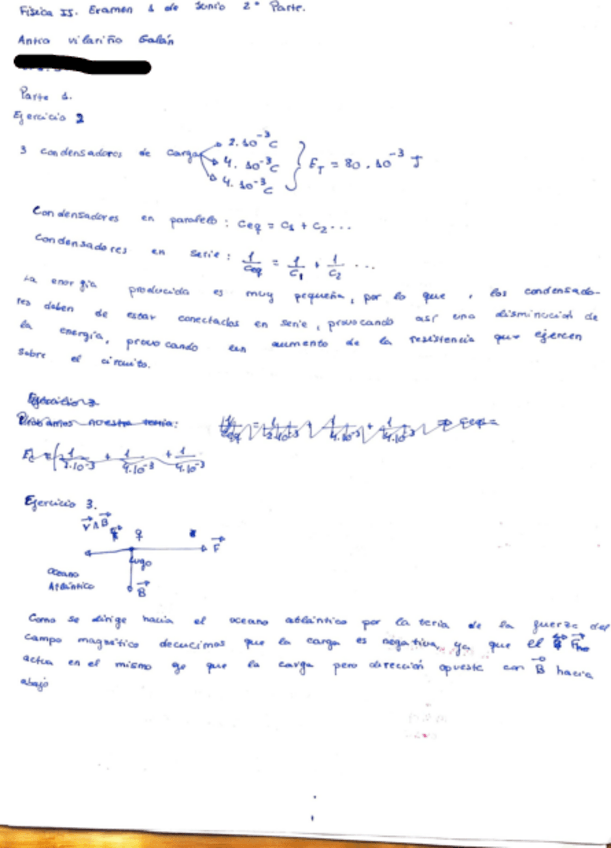 Física II. Examen 1 de Junio 2ª Parte.
Antía Vilariño Galán
Parte 1.
Ejercicio 2
3 condensadores de carga 2.10⁻³C
4.10⁻³C
4.10⁻³C
E_T = 80.10⁻³ J
Condensadores en paralelo: Ceq = C₁ + C₂ ...
Condensadores en serie: 1/Ceq = 1/C₁ + 1/C₂ ...
La energía producida es muy pequeña, por lo que, los condensado-
res deben de estar conectados en serie, provocando así una disminución de
la energía, provocando un aumento de la resistencia que ejercen
sobre el circuito.
Ejercicio 3
Probamos nuestra teoría: 1/Ceq = 1/2.10⁻³ + 1/4.10⁻³ + 1/4.10⁻³ ⇒ Ceq=
1/2.10⁻³ + 1/4.10⁻³ + 1/4.10⁻³
Ejercicio 3.
v∧B
q
F
Lugo
Oceano
Atlántico
B
Como se dirige hacia el oceano atlántico por la teria de la fuerza del
campo magnético decucimos que la carga es negativa, ya que el
actua en el mismo eje que la carga pero dirección opuesta con B hacia
abajo